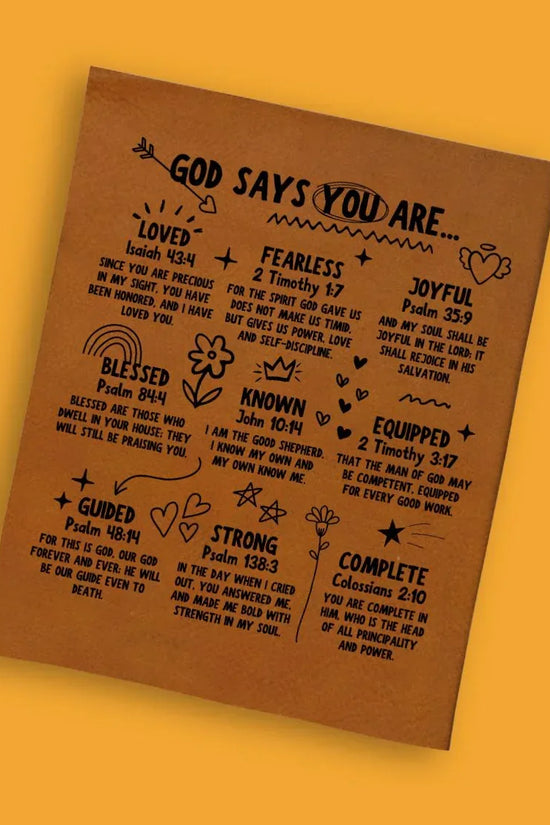 GOD SAYS YOU ARE...
LOVED
Isaiah 43:4
SINCE YOU ARE PRECIOUS
IN MY SIGHT, YOU HAVE
BEEN HONORED, AND I HAVE
LOVED YOU.
FEARLESS
2 Timothy 1:7
FOR THE SPIRIT GOD GAVE US
DOES NOT MAKE US TIMID,
BUT GIVES US POWER, LOVE
AND SELF-DISCIPLINE.
JOYFUL
Psalm 35:9
AND MY SOUL SHALL BE
JOYFUL IN THE LORD; IT
SHALL REJOICE IN HIS
SALVATION.
BLESSED
Psalm 84:4
BLESSED ARE THOSE WHO
DWELL IN YOUR HOUSE; THEY
WILL STILL BE PRAISING YOU.
KNOWN
John 10:14
I AM THE GOOD SHEPHERD.
I KNOW MY OWN AND
MY OWN KNOW ME.
EQUIPPED
2 Timothy 3:17
THAT THE MAN OF GOD MAY
BE COMPETENT, EQUIPPED
FOR EVERY GOOD WORK.
GUIDED
Psalm 48:14
FOR THIS IS GOD, OUR GOD
FOREVER AND EVER; HE WILL
BE OUR GUIDE EVEN TO
DEATH.
STRONG
Psalm 138:3
IN THE DAY WHEN I CRIED
OUT, YOU ANSWERED ME,
AND MADE ME BOLD WITH
STRENGTH IN MY SOUL.
COMPLETE
Colossians 2:10
YOU ARE COMPLETE IN
HIM, WHO IS THE HEAD
OF ALL PRINCIPALITY
AND POWER.